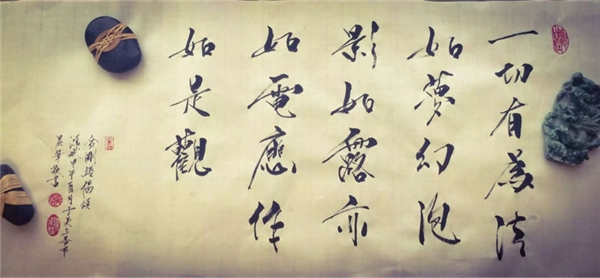 一切有為法
如夢幻泡
影如露亦
如電應作
如是觀
金剛經偈頌